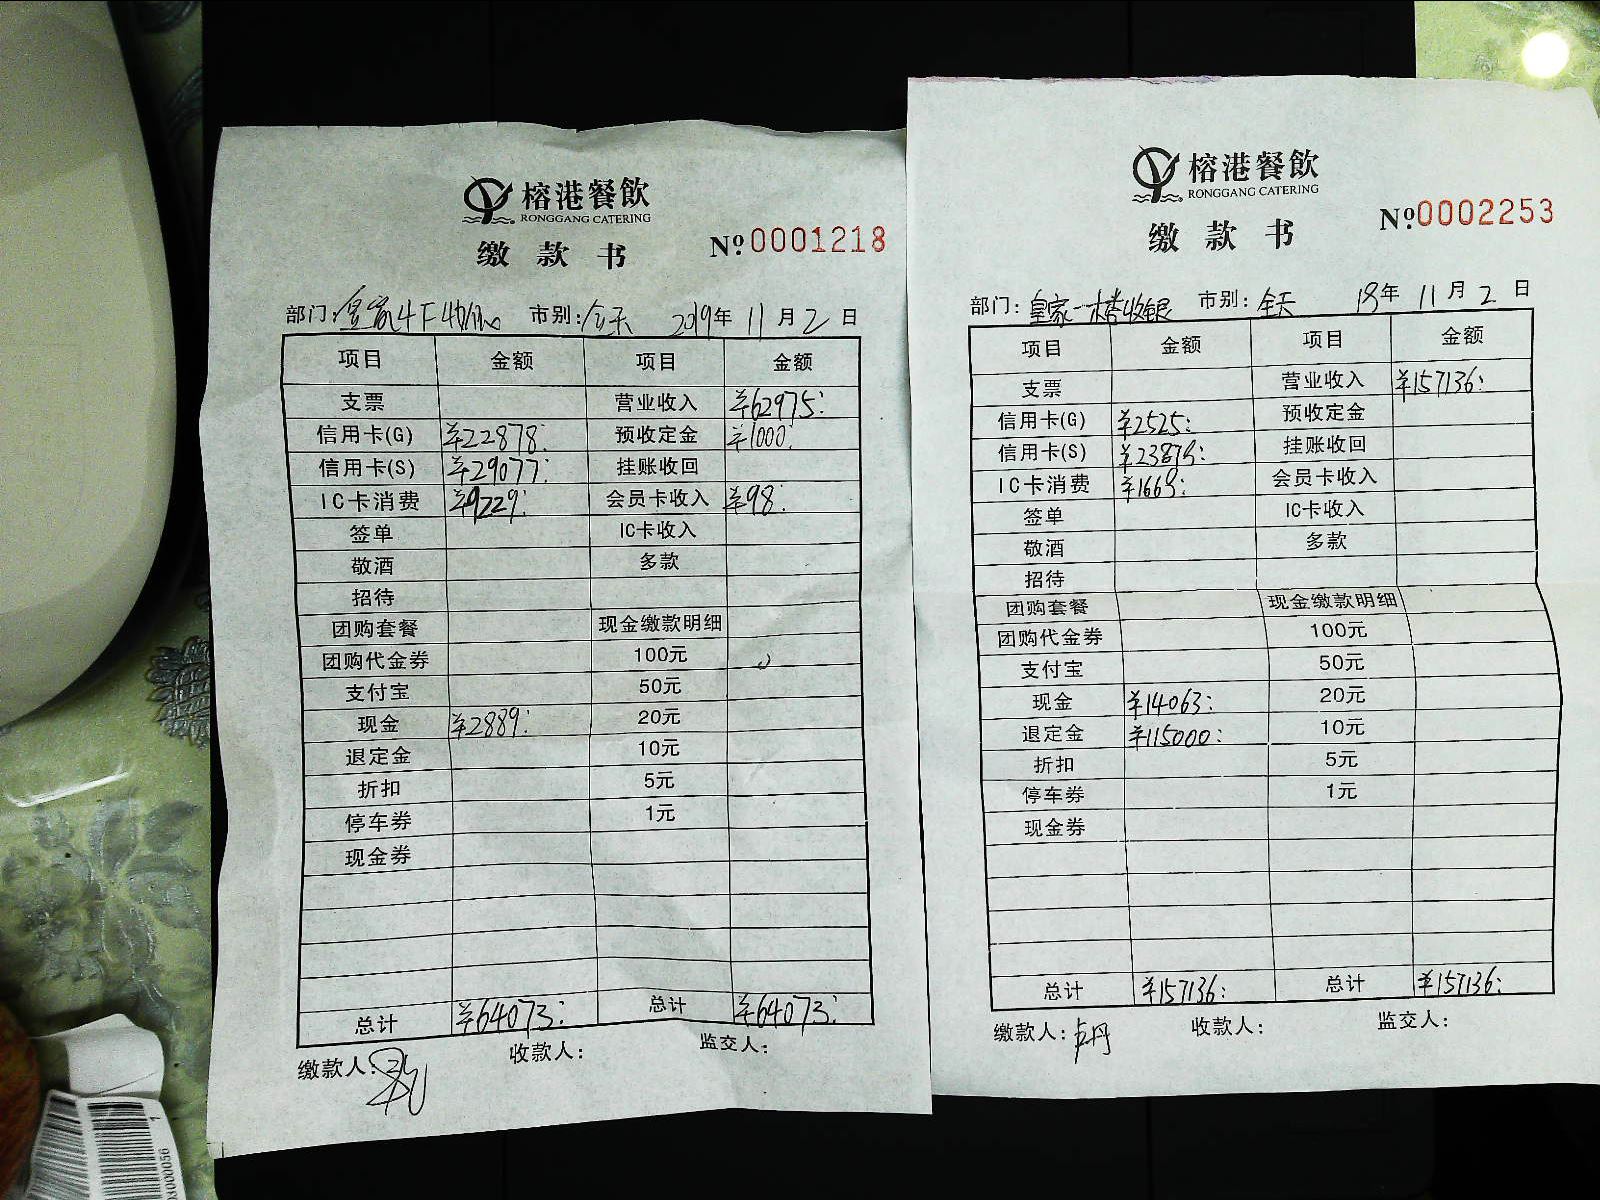 榕港餐飲
RONGGANG CATERING
缴款书
№0001218
部门: 皇家4F收银 市别: 全天 2019年 11月 2日
项目 金额 项目 金额
支票 营业收入 ¥62975:
信用卡(G) ¥22878: 预收定金 ¥1000:
信用卡(S) ¥29077: 挂账收回
IC卡消费 ¥9229: 会员卡收入 ¥98:
签单 IC卡收入
敬酒 多款
招待
团购套餐 现金缴款明细
团购代金券 100元
支付宝 50元
现金 ¥2889: 20元
退定金 10元
折扣 5元
停车券 1元
现金券
总计 ¥64073: 总计 ¥64073:
缴款人: 收款人: 监交人:
榕港餐飲
RONGGANG CATERING
缴款书
№0002253
部门: 皇家一楼收银 市别: 全天 19年 11月 2日
项目 金额 项目 金额
支票 营业收入 ¥157136:
信用卡(G) ¥2525: 预收定金
信用卡(S) ¥23879: 挂账收回
IC卡消费 ¥1669: 会员卡收入
签单 IC卡收入
敬酒 多款
招待
团购套餐 现金缴款明细
团购代金券 100元
支付宝 50元
现金 ¥14063: 20元
退定金 ¥115000: 10元
折扣 5元
停车券 1元
现金券
总计 ¥157136: 总计 ¥157136:
缴款人: 卢丹 收款人: 监交人: